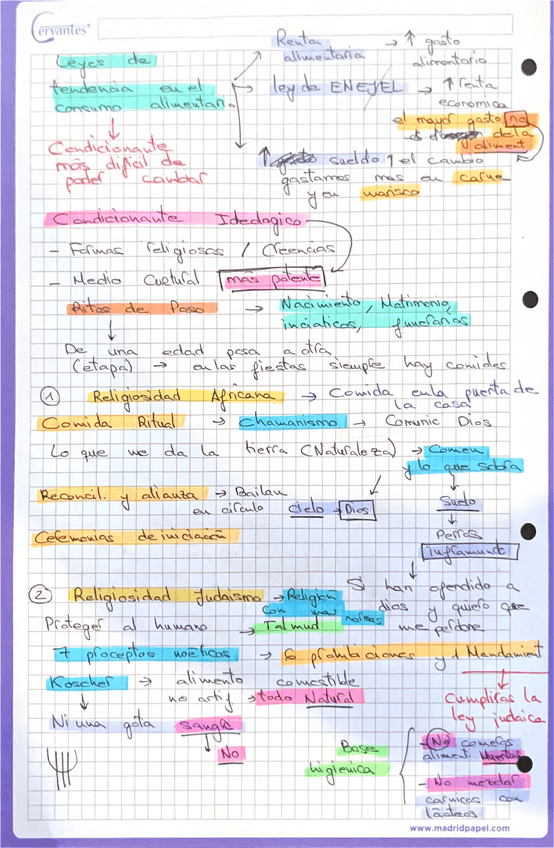 Cervantes
Leyes de
tendencia en el
consumo alimentario.
Renta
alimentaria → ↑ gasto
alimentario
ley de ENEJEL → ↑ renta
economica
el mayor gasto no
es de la
aliment
↑ sueldo ↑ el cambio
gastamos mas en carne
y en marisco
Condicionante
más dificil de
poder cambiar
Condicionante Ideologico
- Formas religiosas / Creencias
- Medio Cultural mas potente
Ritos de Paso → Nacimiento, Matrimonio,
iniciaticos, funerarios
De una edad pasa a otra
(etapa) → en las fiestas siempre hay comidas
① Religiosidad Africana → Comida en la puerta de
la casa
Comida Ritual → Chamanismo → Comunic Dios
Lo que me da la tierra (Naturaleza) → Comen
y lo que sobra
Reconcil. y alianza → Bailan
en circulo cielo → Dios
Suelo
Perros
Inframundo
Ceremonias de iniciación
② Religiosidad Judaismo → Religion
con mas normas
Si han ofendido a
dios y quiero que
me perdone
Proteger al humano → Talmud
7 preceptos noeticos → 6 prohibiciones y 1 Mandamient
Koscher → alimento comestible
no artif → todo Natural
Cumpliras la
ley judaica
Ni una gota sangre
No
Base
higienica
- No comeras
aliment. Muertos
- No mezclar
carnicos con
lácteos
www.madridpapel.com